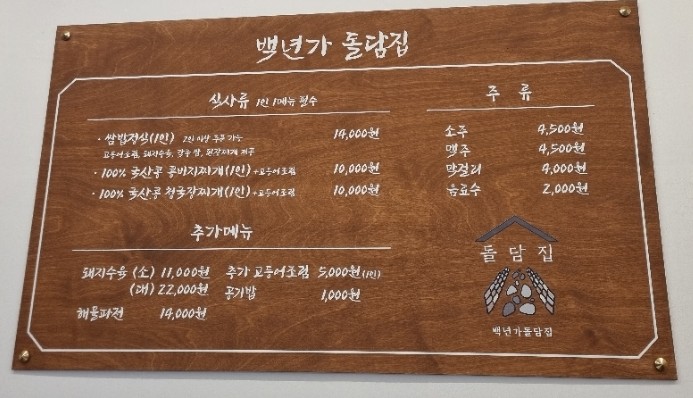 백년가 돌담집
식사류 1인 1메뉴 필수
· 쌈밥정식(1인) 2인 이상 주문 가능 14,000원
고등어조림, 돼지수육, 각종 쌈, 된장찌개 제공
· 100% 국산콩 콩비지찌개(1인) +고등어조림 10,000원
· 100% 국산콩 청국장찌개(1인) +고등어조림 10,000원
추가메뉴
돼지수육 (소) 11,000원 추가 고등어조림 5,000원(1인)
(대) 22,000원 공기밥 1,000원
해물파전 14,000원
주 류
소주 4,500원
맥주 4,500원
막걸리 4,000원
음료수 2,000원
돌담집
백년가돌담집